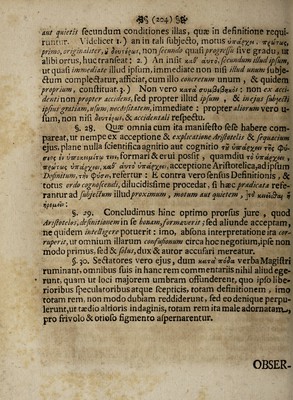 (204)
aut quietis secundum conditiones illas, quæ in definitione requi-
runtur. Videlicet 1.) an in tali subjecto, motus ὑπάρχη. πρώτως,
primo, originaliter, & δευτέρως, non secundo quasi progressu sive gradu, ut
alibi ortus, huc transeat; 2.) An insit καθ᾽ αυτό. secundum illud ipsum,
ut quasi immediate illud ipsum, immediate non nisi illud unum subje-
ctum complectatur, afficiat, cum illo concretum unum, & quidem
proprium, constituat. 3.) Non vero κατὰ συμβεβηκός: non ex acci-
denti non propter accidens, sed propter illud ipsum, & in ejus subjecti
ipsius gratiam, usum, necessitatem, immediate: propter aliorum vero u-
sum, non nisi δευτέρως, & accidentali respectu.
§. 28. Quæ omnia cum ita manifesto sese habere com-
pareat, ut nempe ex acceptione & explicatione Aristotelis & sequacium
ejus, plane nulla scientifica agnitio aut cognitio τῦ ὑπάρχειν τῆς φύ-
σεως ἐν ὑποκειμένῳ τινι, formari & erui possit, quamdiu τὸ ὑπάρχειν,
πρώτως ὑπάρχειν, καθ᾽ αυτὸ ὑπάρχειν, acceptione Aristotelica, ad ipsam
Definitum, τὴν Φύσιν. refertur: E contra vero sensus Definitionis, &
totus ordo cognoscendi, dilucidissime procedat, si hæc prædicata refe-
rantur ad subjectum illud proximum, motum aut quietem,
§. 29. Concludimus hinc optimo prorsus jure, quod
Aristoteles, definitionem in se bonam, formaverit: sed aliunde acceptam,
ne quidem intelligere potuerit: imo, absona interpretatione ita cor-
ruperit, ut omnium illarum confusionum circa hoc negotium, ipse non
modo primus, sed & solus, dux & autor accusari mereatur.
§. 30. Sectatores vero ejus, dum κατὰ πόδα verba Magistri
ruminant, omnibus suis in hanc rem commentariis nihil aliud ege-
runt, quam ut loci majorem umbram offunderent, quo ipso libe-
rioribus speculatoribus atque scepticis, totam definitionem, imo
totam rem, non modo dubiam redderunt, sed eo denique perpu-
lerunt, ut tædio altioris indaginis, totam rem ita male adornatam,
pro frivolo & otioso figmento aspernarentur.
OBSER-